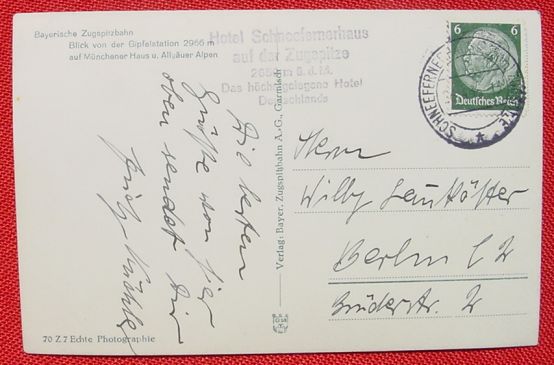 Bayerische Zugspitzbahn
Blick von der Gipfelstation 2966 m
auf Münchener Haus u. Allgäuer Alpen
Hotel Schneefernerhaus
auf der Zugspitze
2650 m ü.d.M.
Das höchstgelegene Hotel
Deutschlands
6 6
Deutsches Reich
SCHNEEFERNER
Die besten
Grüße von hier
oben sendet Dir
Fritz
Verlag: Bayer. Zugspitzbahn A.-G., Garmisch
Herrn
Willy
Berlin C 2
Brüderstr. 2
70 Z 7 Echte Photographie